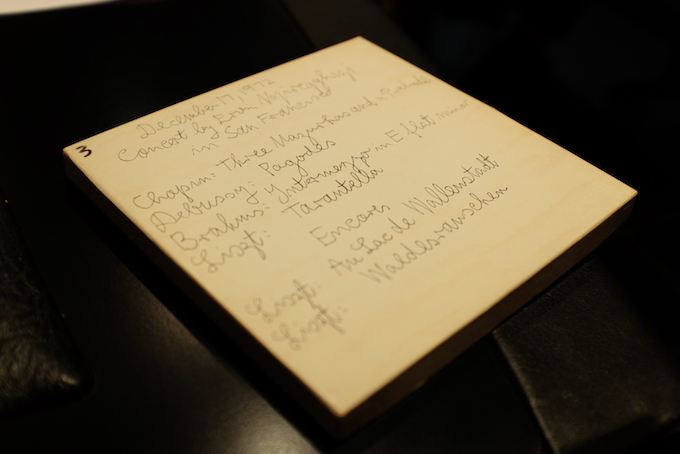 3
December 17, 1972
Concert by Ervin Nyiregyhazi
in San Francisco
Chopin: Three Mazurkas and a Prelude
Debussy: Pagodes
Brahms: Intermezzo in E flat minor
Liszt: Tarantella
Encores
Liszt: Au Lac de Wallenstadt
Liszt: Waldesrauschen